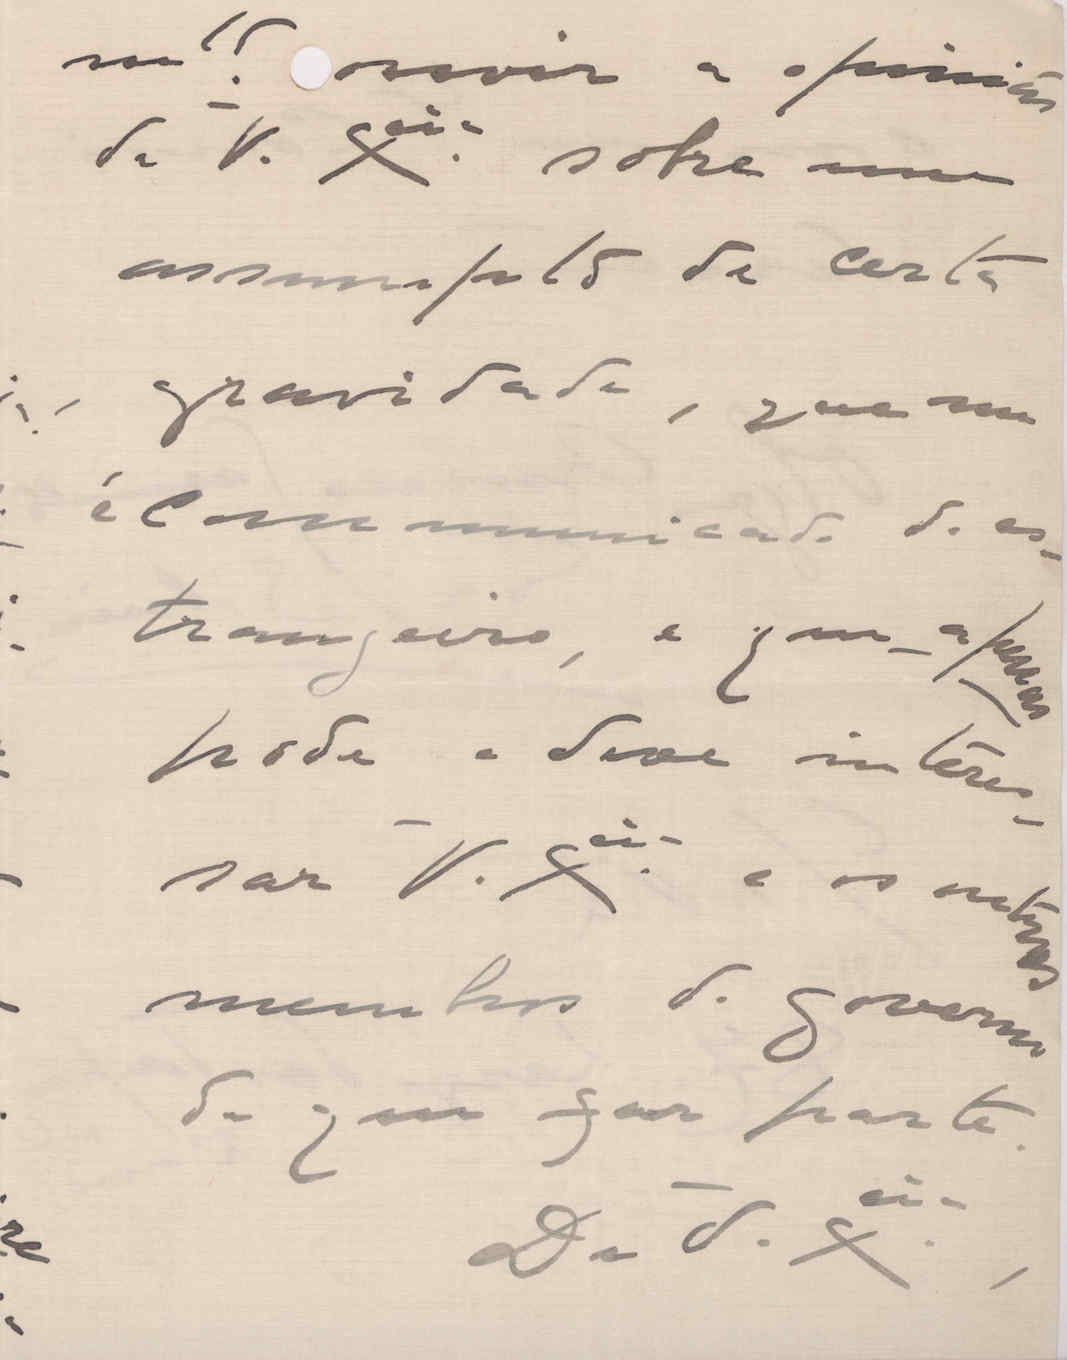 mto. ouvir a opinião
de V. Xcia. sobre um
assumpto de certa
gravidade, que me
é communicado do es-
trangeiro, e que apenas
pode e deve interes-
sar V. Xcia. e os outros
membros do governo
de que faz parte.
De V. Xcia.,